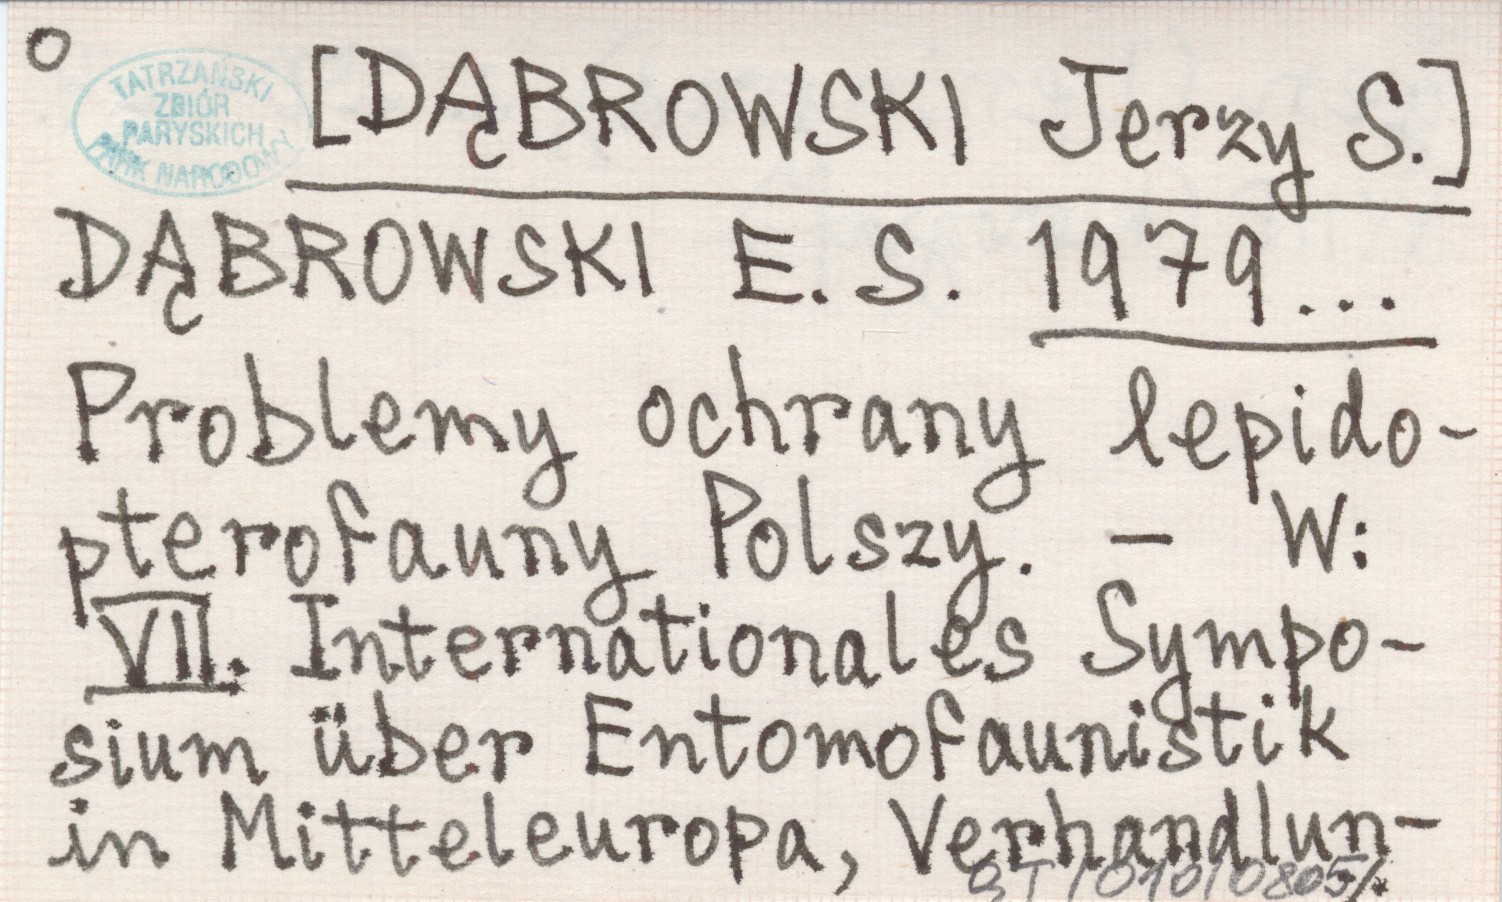 O
TATRZAŃSKI
ZBIÓR
PARYSKICH
PARK NARODOWY
[DĄBROWSKI Jerzy S.]
DĄBROWSKI E. S. 1979...
Problemy ochrany lepido-
pterofauny Polszy. - W:
VII. Internationales Sympo-
sium über Entomofaunistik
in Mitteleuropa, Verhandlun-